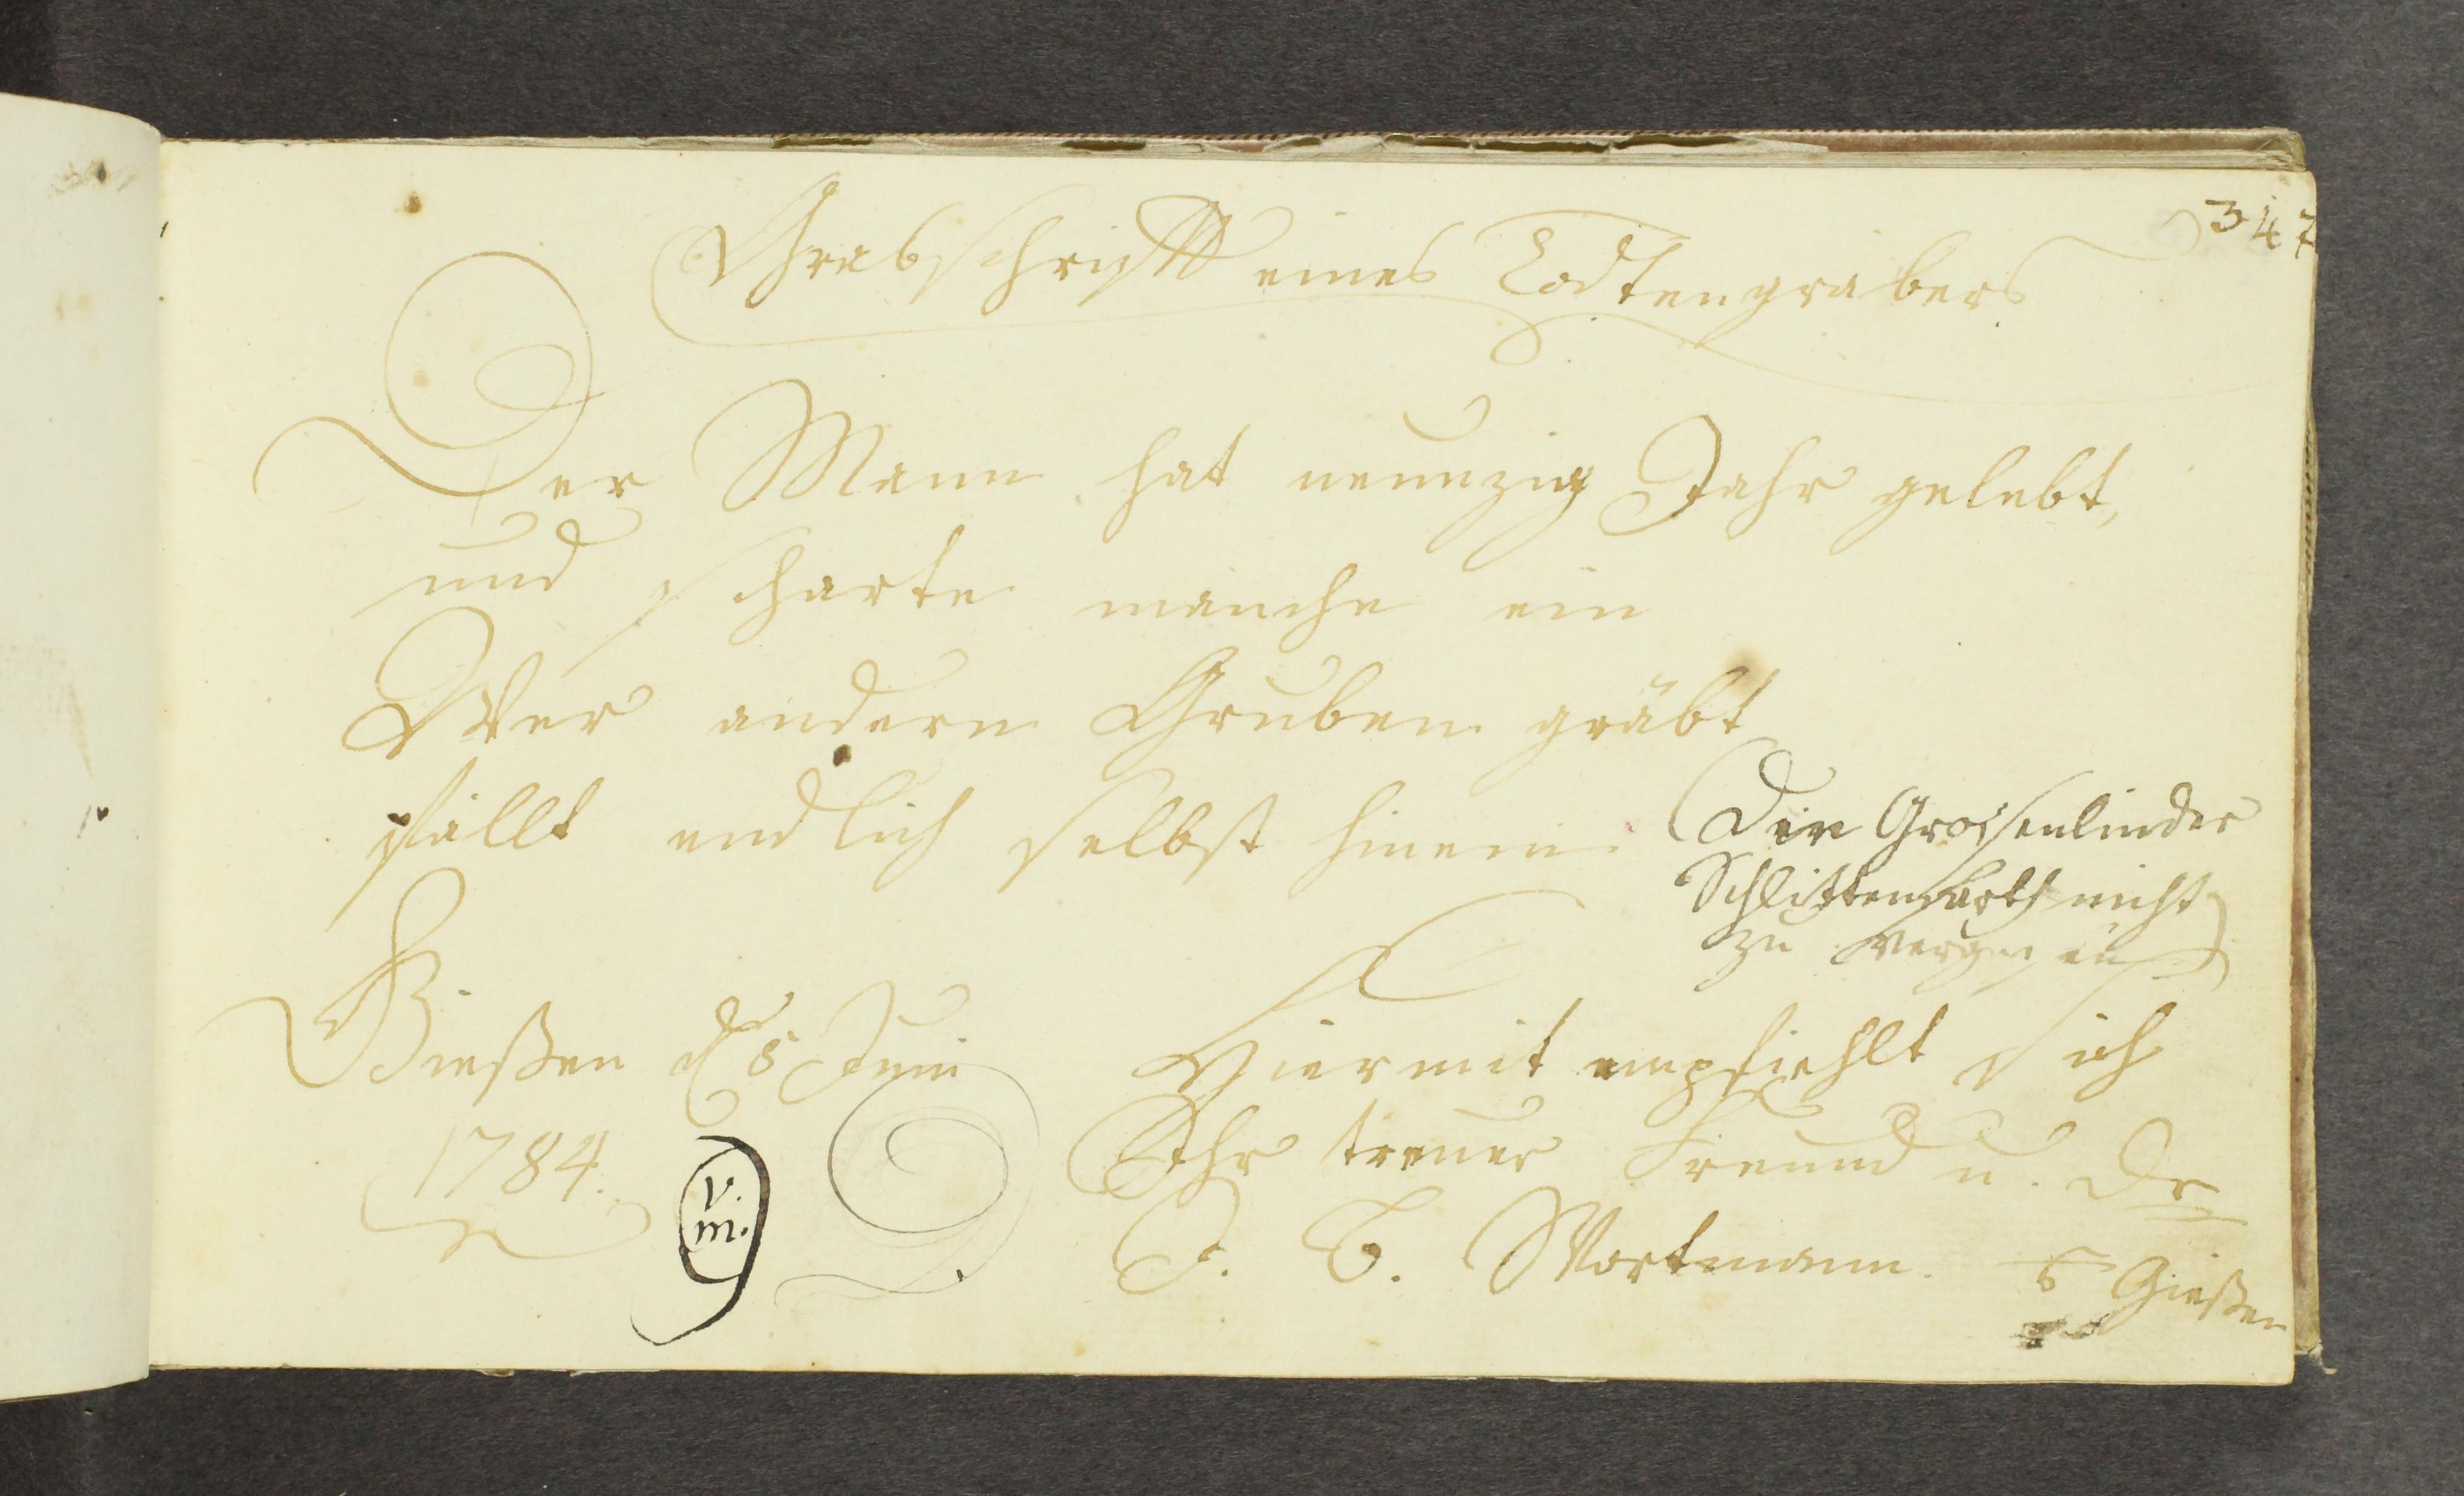 347
Grabschrifft eines Todtengräbers
Der Mann hat neunzig Jahr gelebt,
und scharte manche ein
Wer andern Gruben gräbt
fällt endlich selbst hinein
(Die Grossenlinder
Schlittenfarth nicht
zu vergessen)
Giessen d 5 Juni
1784.
V.
m.
Hiermit empfiehlt sich
Ihr treuer Freund u. Dr
J. C. Wortmann.
Gießen